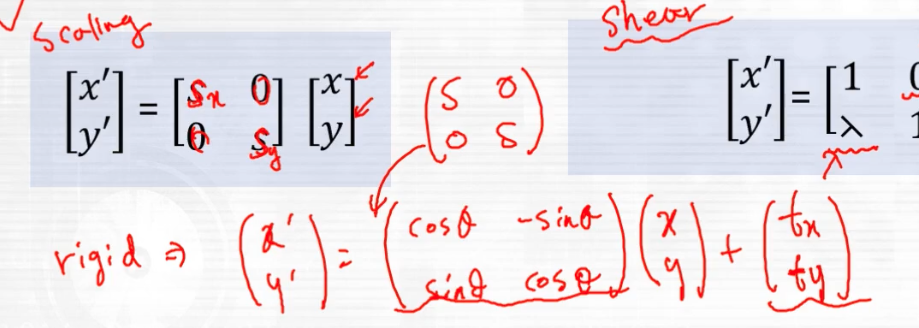 Scaling
Shear
[x' y'] = [Sx 0 0 Sy] [x y]
(S 0 0 S)
[x' y'] = [1 0 λ 1
rigid ⇒ (x' y') = (cosθ -sinθ sinθ cosθ) (x y) + (tx ty)